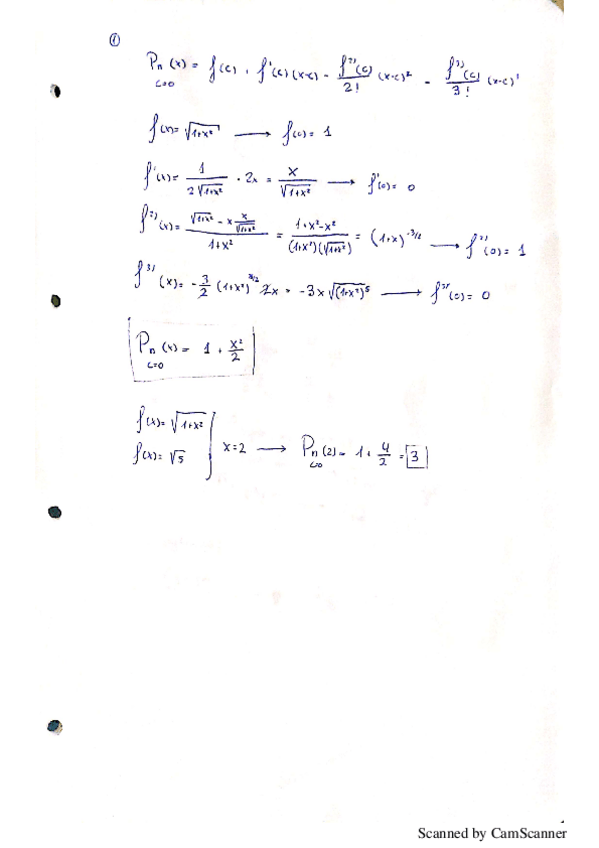 ①
Pn(x) = f(c) + f'(c)(x-c) - f''(c)/2! (x-c)² - f'''(c)/3! (x-c)'
c=0
f(x) = √(1+x²) → f(0) = 1
f'(x) = 1/(2√(1+x²)) · 2x = x/√(1+x²) → f'(0) = 0
f''(x) = (√(1+x²) - x x/√(1+x²))/(1+x²) = (1+x²-x²)/((1+x²)(√(1+x²))) = (1+x)^-3/2 → f''(0) = 1
f'''(x) = -3/2 (1+x²)^3/2 2x = -3x√(1+x²)⁵ → f'''(0) = 0
Pn(x) = 1 + x²/2
c=0
f(x) = √(1+x²)
f(x) = √5 } x=2 → Pn(2) = 1 + 4/2 = 3
c=0
Scanned by CamScanner